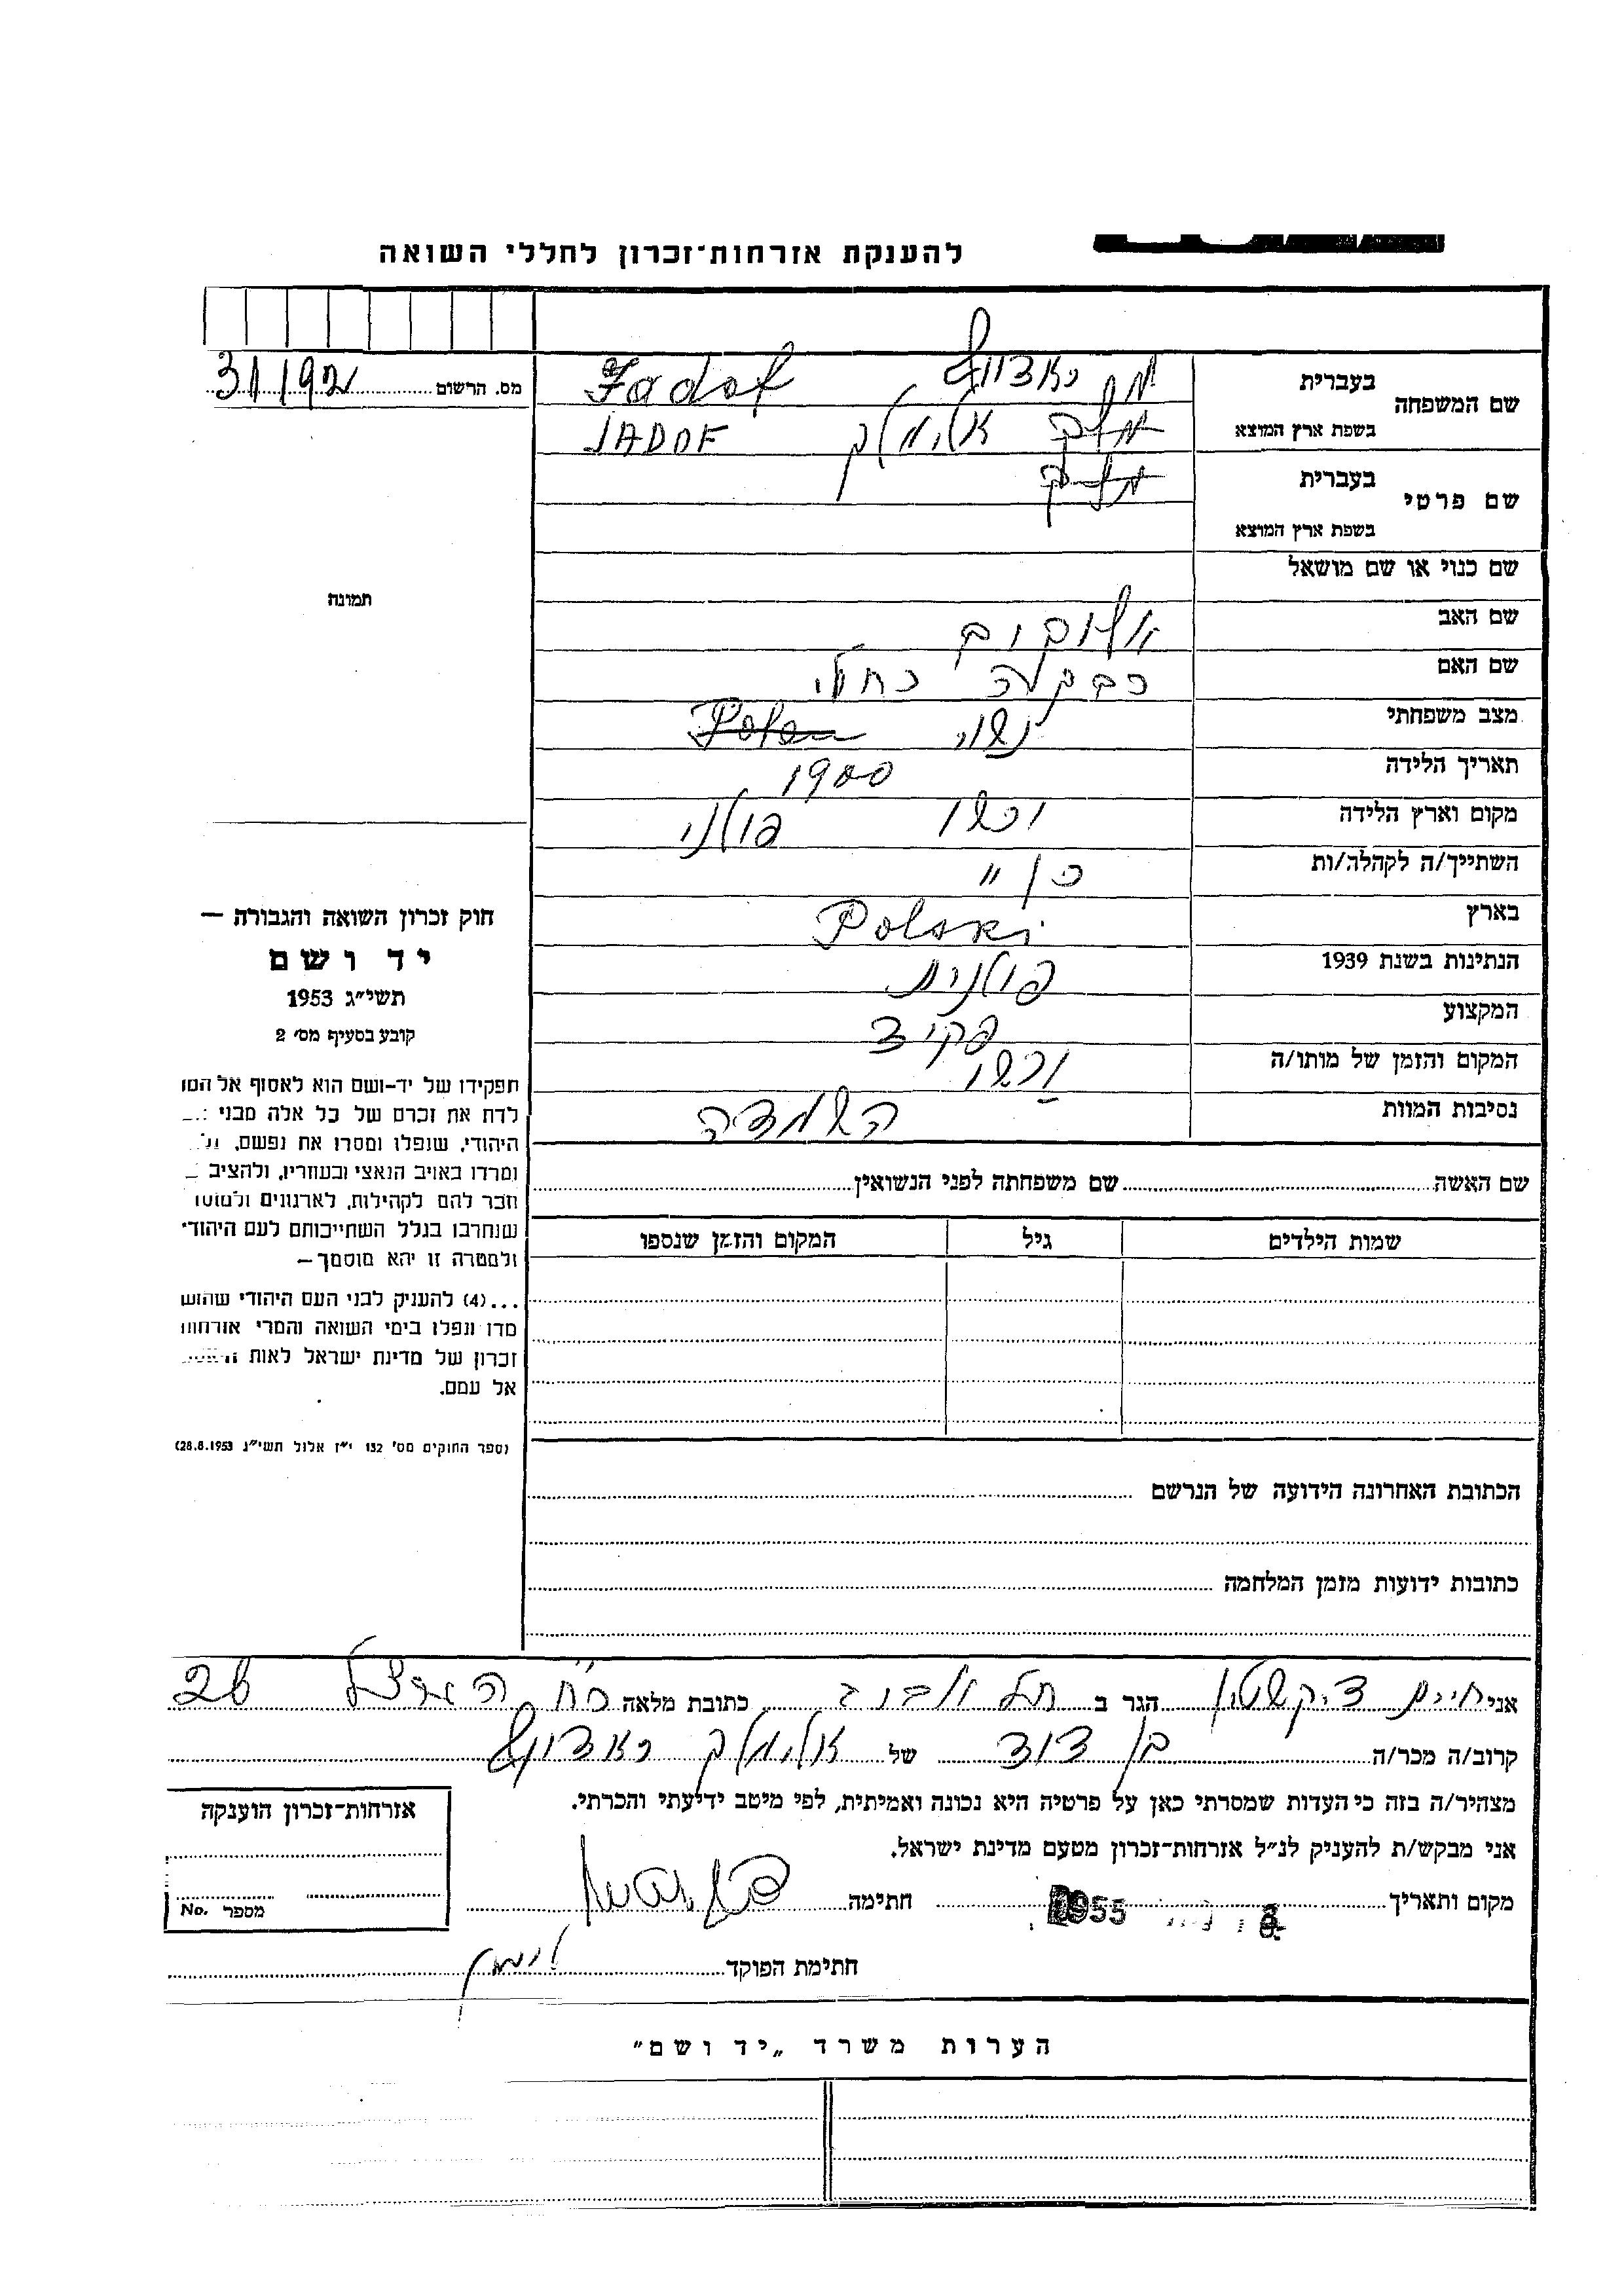 להענקת אזרחות־זכרון לחללי השואה
מס. הרשום 31/92
שם המשפחה
בעברית יאדוף Jadof
בשפת ארץ המוצא אלימלך JADOF
שם פרטי
בעברית
בשפת ארץ המוצא
שם כנוי או שם מושאל
תמונה
שם האב
שם האם רבקה רחל
מצב משפחתי נשוי Polen
תאריך הלידה 1900
מקום וארץ הלידה ורשו פולני
השתייך/ה לקהלה/ות כן "
בארץ Polski
הנתינות בשנת 1939 פולנית
המקצוע פקיד
המקום והזמן של מותו/ה ורשו
נסיבות המוות השמדה
חוק זכרון השואה והגבורה —
יד ושם
תשי״ג 1953
קובע בסעיף מס׳ 2
תפקידו של יד-ושם הוא לאסוף אל
לדת את זכרם של כל אלה מבני
היהודי, שנפלו ומסרו את נפשם,
ומרדו באויב הנאצי ובעוזריו, ולהציב
וזכר להם לקהילות, לארגונים
שנחרבו בגלל השתייכותם לעם היהודי
ולמטרה זו יהא מוסמך —
...(4) להעניק לבני העם היהודי
מדו ונפלו בימי השואה והמרי אזרחות
זכרון של מדינת ישראל לאות
אל עמם.
(ספר החוקים מס׳ 132 י״ז אלול תשי״ג 28.8.1953)
שם האשה שם משפחתה לפני הנשואין
שמות הילדים גיל המקום והזמן שנספו
הכתובת האחרונה הידועה של הנרשם
כתובות ידועות מזמן המלחמה
אני חיים דיקשטין הגר ב תל אביב כתובת מלאה רח׳ 26
קרוב/ה מכר/ה בן דוד של אלימלך יאדוף
מצהיר/ה בזה כי העדות שמסרתי כאן על פרטיה היא נכונה ואמיתית, לפי מיטב ידיעתי והכרתי.
אני מבקש/ת להעניק לנ״ל אזרחות־זכרון מטעם מדינת ישראל.
מקום ותאריך 1955 חתימה
חתימת הפוקד
אזרחות־זכרון הוענקה
מספר No.
הערות משרד „יד ושם״